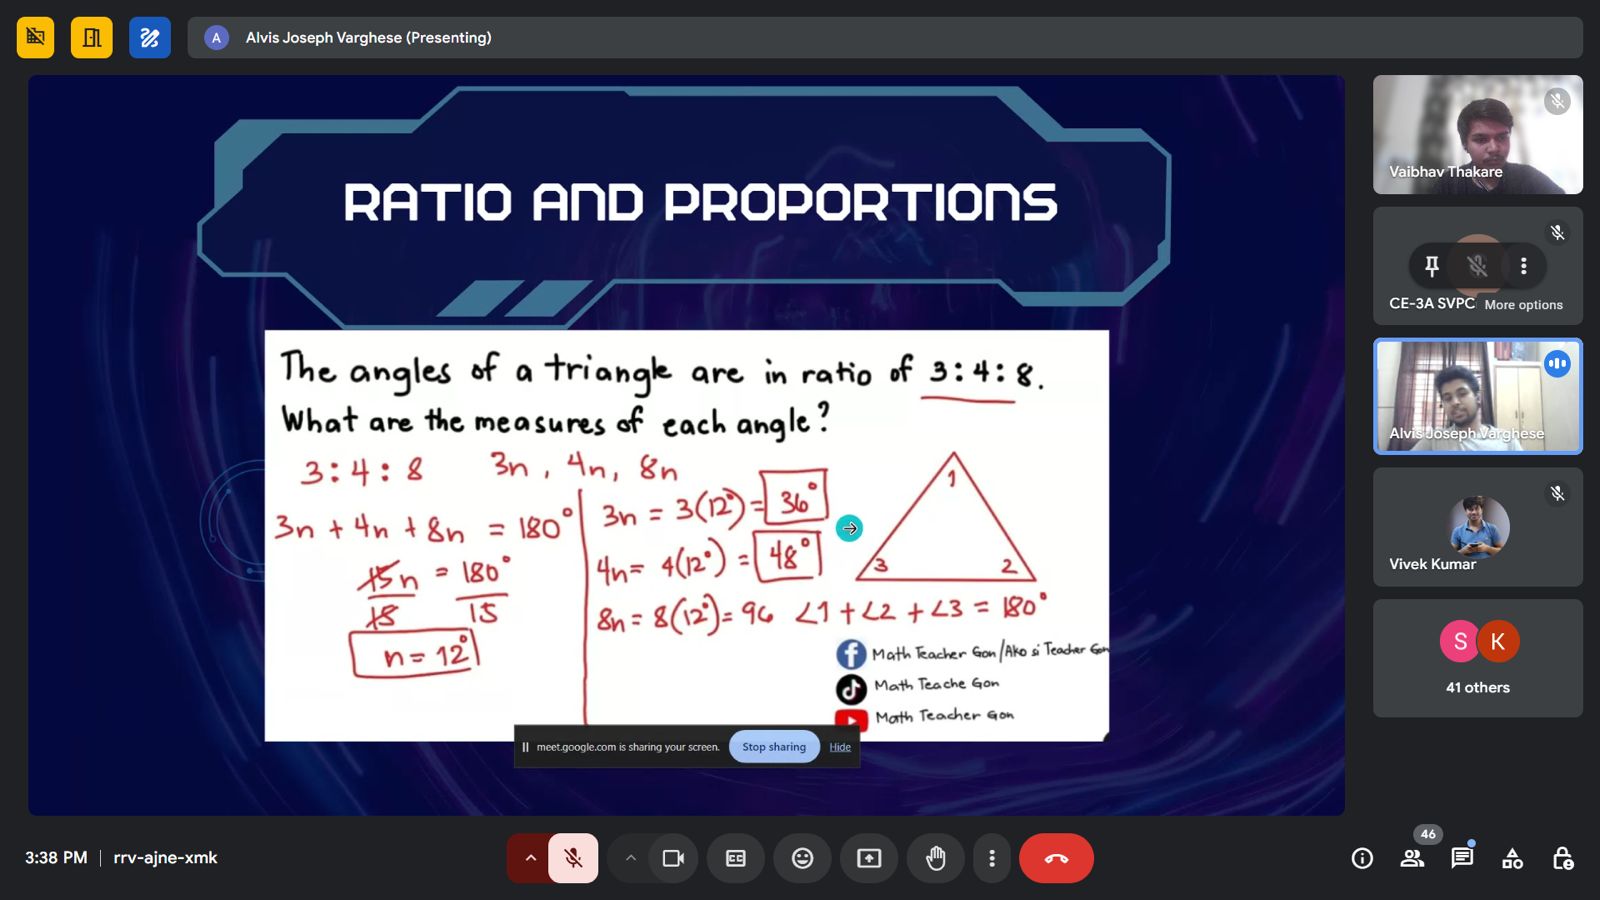 A Alvis Joseph Varghese (Presenting)
RATIO AND PROPORTIONS
The angles of a triangle are in ratio of 3:4:8.
What are the measures of each angle?
3:4:8 3n, 4n, 8n
3n + 4n + 8n = 180°
15n = 180°
15 15
n = 12°
3n = 3(12°) = 36°
4n = 4(12°) = 48°
8n = 8(12°) = 96
1
3 2
∠1 + ∠2 + ∠3 = 180°
Math Teacher Gon/Ako si Teacher Gon
Math Teache Gon
Math Teacher Gon
meet.google.com is sharing your screen. Stop sharing Hide
Vaibhav Thakare
CE-3A SVPC More options
Alvis Joseph Varghese
Vivek Kumar
S K
41 others
3:38 PM | rrv-ajne-xmk
CC
46